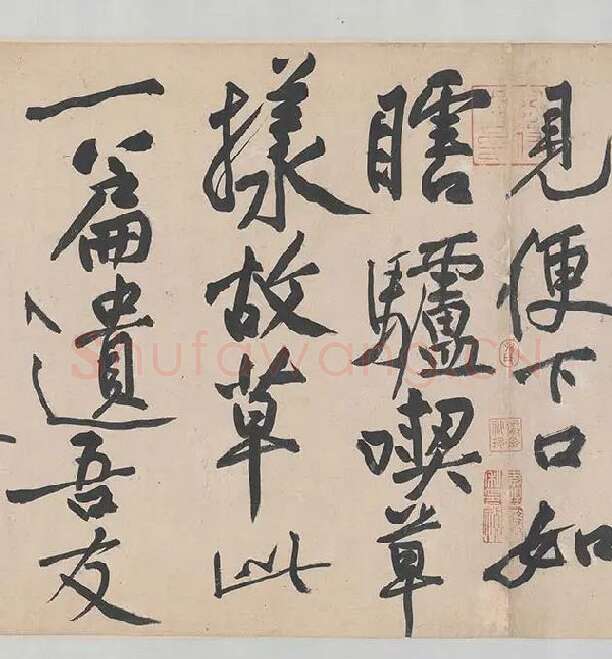 見便下口如
瞎驢喫草
樣故草此
一篇遺吾友
Shufawang.CN